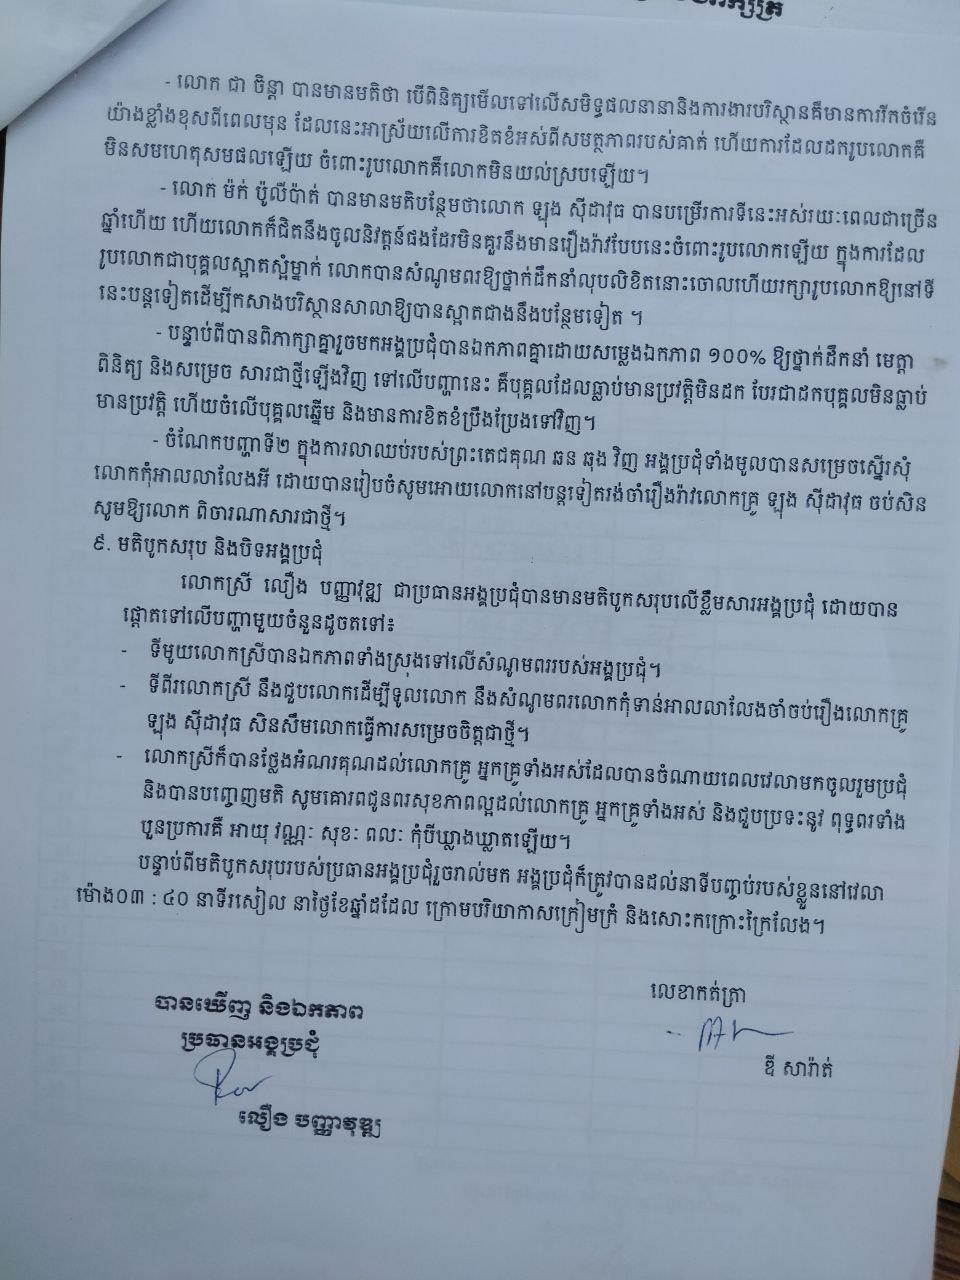 - លោក ជា ចិន្តា បានមានមតិថា បើពិនិត្យមើលទៅលើសមិទ្ធផលនានានិងការងារបរិស្ថានគឺមានការរីកចំរើន
យ៉ាងខ្លាំងខុសពីពេលមុន ដែលនេះអាស្រ័យលើការខិតខំអស់ពីសមត្ថភាពរបស់គាត់ ហើយការដែលដករូបលោកគឺ
មិនសមហេតុសមផលឡើយ ចំពោះរូបលោកគឺលោកមិនយល់ស្របឡើយ។
- លោក ម៉ក់ ប៉ូលីប៉ាត់ បានមានមតិបន្ថែមថាលោក ឡុង ស៊ីដាវុធ បានបម្រើការទីនេះអស់រយៈពេលជាច្រើន
ឆ្នាំហើយ ហើយលោកក៏ជិតនឹងចូលនិវត្តន៍ផងដែរមិនគួរនឹងមានរឿងរ៉ាវបែបនេះចំពោះរូបលោកឡើយ ក្នុងការដែល
រូបលោកជាបុគ្គលស្អាតស្អំម្នាក់ លោកបានសំណូមពរឱ្យថ្នាក់ដឹកនាំលុបលិខិតនោះចោលហើយរក្សារូបលោកឱ្យនៅទី
នេះបន្តទៀតដើម្បីកសាងបរិស្ថានសាលាឱ្យបានស្អាតជាងនឹងបន្ថែមទៀត ។
- បន្ទាប់ពីបានពិភាក្សាគ្នារួចមកអង្គប្រជុំបានឯកភាពគ្នាដោយសម្លេងឯកភាព ១០០% ឱ្យថ្នាក់ដឹកនាំ មេត្តា
ពិនិត្យ និងសម្រេច សារជាថ្មីឡើងវិញ ទៅលើបញ្ហានេះ គឺបុគ្គលដែលធ្លាប់មានប្រវត្តិមិនដក បែរជាដកបុគ្គលមិនធ្លាប់
មានប្រវត្តិ ហើយចំលើបុគ្គលឆ្នើម និងមានការខិតខំប្រឹងប្រែងទៅវិញ។
- ចំណែកបញ្ហាទី២ ក្នុងការលាឈប់របស់ព្រះតេជគុណ ឆន ឆុង វិញ អង្គប្រជុំទាំងមូលបានសម្រេចស្នើរសុំ
លោកកុំអាលលាលែងអី ដោយបានរៀបចំសូមអោយលោកនៅបន្តទៀតរង់ចាំរឿងរ៉ាវលោកគ្រូ ឡុង ស៊ីដាវុធ ចប់សិន
សូមឱ្យលោក ពិចារណាសារជាថ្មី។
៩. មតិបូកសរុប និងបិទអង្គប្រជុំ
លោកស្រី លឿង បញ្ញាវុឌ្ឍ ជាប្រធានអង្គប្រជុំបានមានមតិបូកសរុបលើខ្លឹមសារអង្គប្រជុំ ដោយបាន
ផ្តោតទៅលើបញ្ហាមួយចំនួនដូចតទៅ៖
- ទីមួយលោកស្រីបានឯកភាពទាំងស្រុងទៅលើសំណូមពររបស់អង្គប្រជុំ។
- ទីពីរលោកស្រី នឹងជួបលោកដើម្បីទូលលោក នឹងសំណូមពរលោកកុំទាន់អាលលាលែងចាំចប់រឿងលោកគ្រូ
ឡុង ស៊ីដាវុធ សិនសឹមលោកធ្វើការសម្រេចចិត្តជាថ្មី។
- លោកស្រីក៏បានថ្លែងអំណរគុណដល់លោកគ្រូ អ្នកគ្រូទាំងអស់ដែលបានចំណាយពេលវេលាមកចូលរួមប្រជុំ
និងបានបញ្ចេញមតិ សូមគោរពជូនពរសុខភាពល្អដល់លោកគ្រូ អ្នកគ្រូទាំងអស់ និងជួបប្រទះនូវ ពុទ្ធពរទាំង
បួនប្រការគឺ អាយុ វណ្ណៈ សុខៈ ពលៈ កុំបីឃ្លាងឃ្លាតឡើយ។
បន្ទាប់ពីមតិបូកសរុបរបស់ប្រធានអង្គប្រជុំរួចរាល់មក អង្គប្រជុំក៏ត្រូវបានដល់នាទីបញ្ចប់របស់ខ្លួននៅវេលា
ម៉ោង០៣ : ៤០ នាទីរសៀល នាថ្ងៃខែឆ្នាំដដែល ក្រោមបរិយាកាសក្រៀមក្រំ និងសោះកក្រោះក្រៃលែង។
លេខាកត់ត្រា
បានឃើញ និងឯកភាព
ប្រធានអង្គប្រជុំ
ឌី សារ៉ាត់
លឿង បញ្ញាវុឌ្ឍ